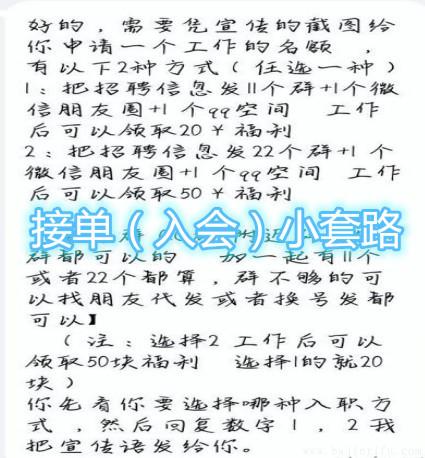 好的，需要凭宣传的截图给
你申请一个工作的名额，
有以下2种方式（任选一种）
1：把招聘信息发11个群+1个微
信朋友圈+1个qq空间 工作
后可以领取20￥福利
2：把招聘信息发22个群+1个
微信朋友圈+1个qq空间 工作
后可以领取50￥福利
接单（入会）小套路
群都可以的 加一起有11个
或者22个都算，群不够的可
以找朋友代发或者换号发都
可以】
（注：选择2 工作后可以
领取50块福利 选择1的就20
块）
你先看你要选择哪种入职方
式，然后回复数字1，2我
把宣传语发给你。